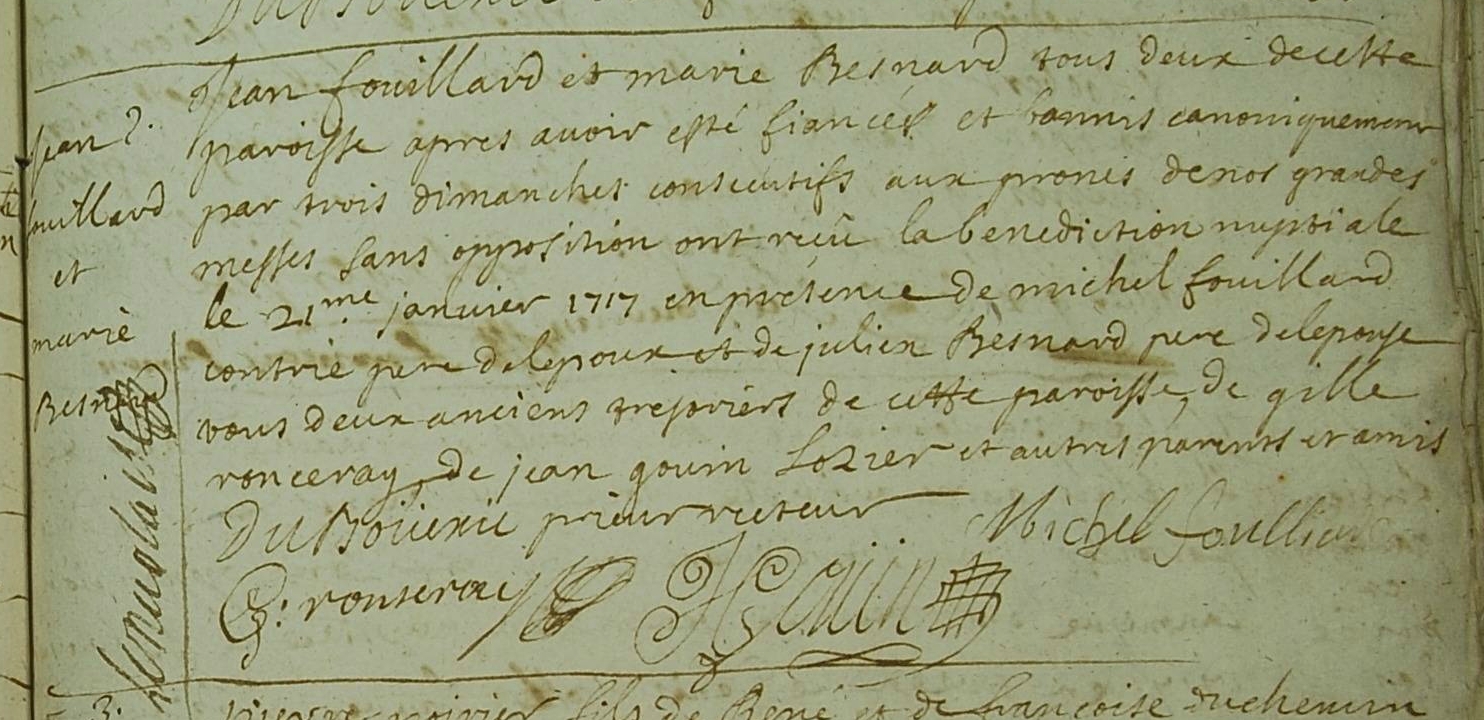 Jean fouillard et marie Besnard tous deux decette
paroisse apres avoir esté fiancés et bannis canoniquement
par trois dimanches consecutifs aux prones denos grandes
messes sans opposition ont reçû labenediction nuptiale
le 21me janvier 1717 enpresence de michel fouillard
contrie pere delepoux et de julien Besnard pere delepouse
tous deux anciens tresoriers de cette paroisse, de gille
ronceray, de jean gouin Lozier et autres parents et amis
DuBoüexic prieur recteur Michel foullia
G: ronseray J Gouin
Jean 2.
fouillard
et
marie
Besnard
3. fils de René et de francoise duchemin